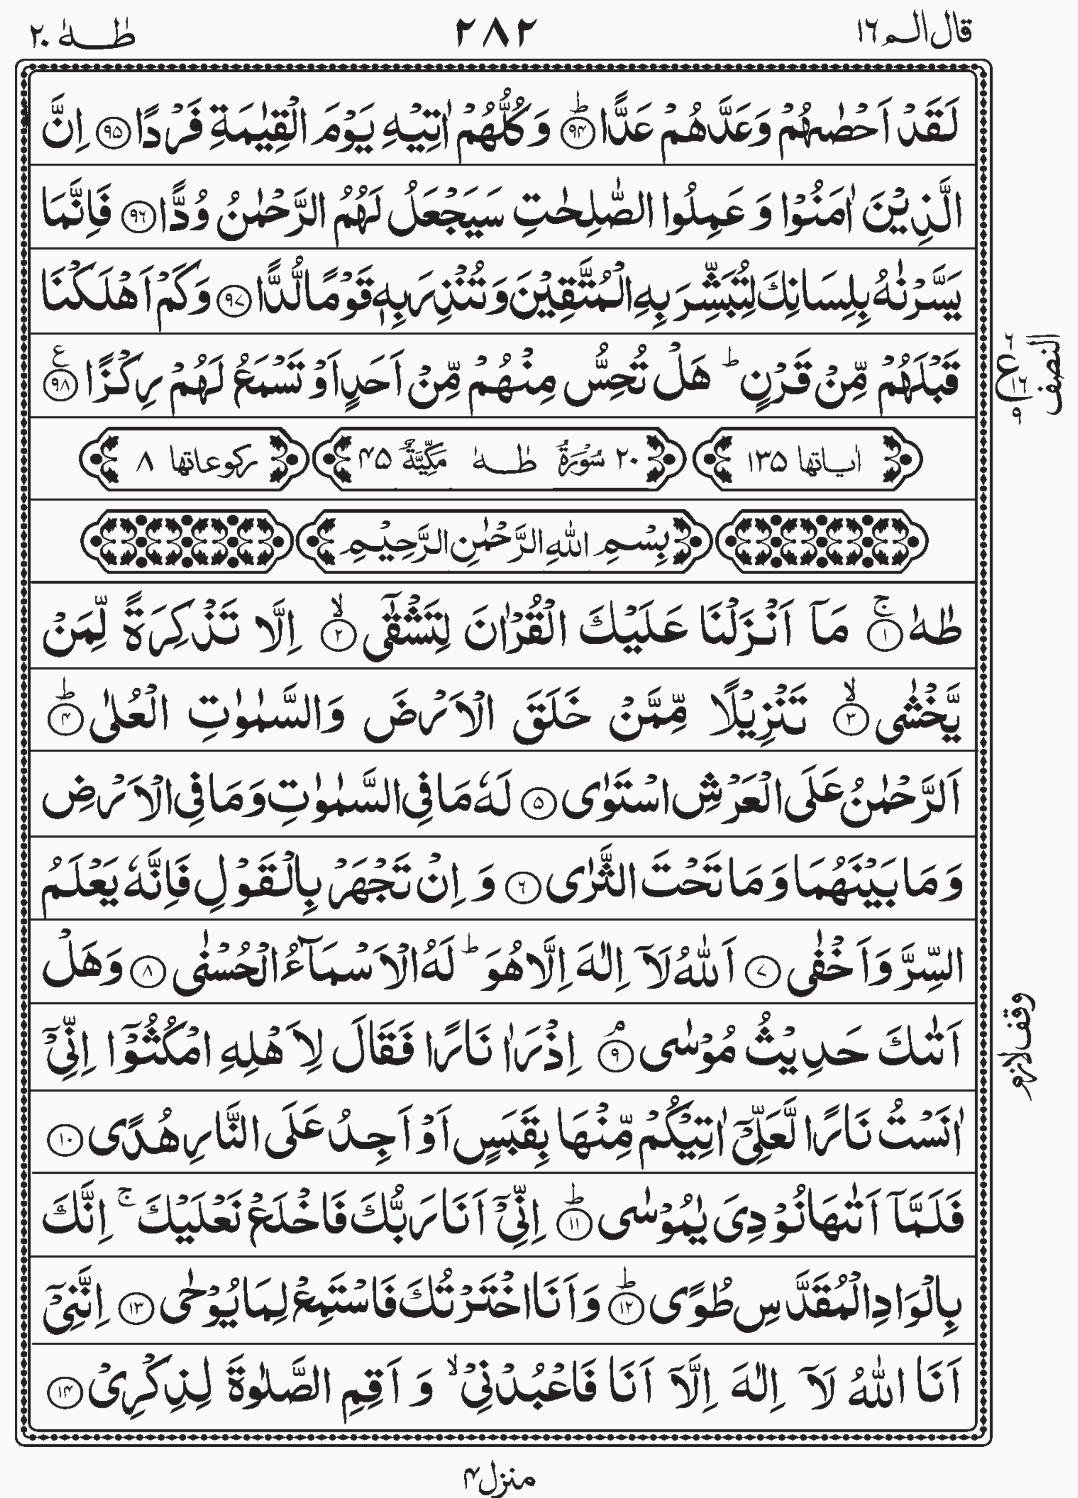 قال الم ١٦ ٢٨٢ طٰهٰ ٢٠
لَقَدْ اَحْصٰىهُمْ وَعَدَّهُمْ عَدًّا ؕ‏﴿۹۴﴾ وَكُلُّهُمْ اٰتِيْهِ يَوْمَ الْقِيٰمَةِ فَرْدًا ﴿۹۵﴾ اِنَّ
الَّذِيْنَ اٰمَنُوْا وَ عَمِلُوا الصّٰلِحٰتِ سَيَجْعَلُ لَهُمُ الرَّحْمٰنُ وُدًّا ﴿۹۶﴾ فَاِنَّمَا
يَسَّرْنٰهُ بِلِسَانِكَ لِتُبَشِّرَ بِهِ الْمُتَّقِيْنَ وَتُنْذِرَ بِهٖ قَوْمًا لُّدًّا ﴿۹۷﴾ وَكَمْ اَهْلَكْنَا
قَبْلَهُمْ مِّنْ قَرْنٍ ؕ هَلْ تُحِسُّ مِنْهُمْ مِّنْ اَحَدٍ اَوْ تَسْمَعُ لَهُمْ رِكْزًا ﴿۹۸﴾ ع
النصف
٦ ع ١٦ ٩
اٰیاتها ۱۳۵ ۲۰ سُوْرَةُ طٰهٰ مَكِّيَّةٌ ۴۵ ركوعاتها ۸
بِسْمِ اللّٰهِ الرَّحْمٰنِ الرَّحِيْمِ
طٰهٰ ۚ‏﴿۱﴾ مَاۤ اَنْزَلْنَا عَلَيْكَ الْقُرْاٰنَ لِتَشْقٰٓى ۙ‏﴿۲﴾ اِلَّا تَذْكِرَةً لِّمَنْ
يَّخْشٰى ۙ‏﴿۳﴾ تَنْزِيْلًا مِّمَّنْ خَلَقَ الْاَرْضَ وَالسَّمٰوٰتِ الْعُلٰى ؕ‏﴿۴﴾
اَلرَّحْمٰنُ عَلَى الْعَرْشِ اسْتَوٰى ﴿۵﴾ لَهٗ مَا فِى السَّمٰوٰتِ وَمَا فِى الْاَرْضِ
وَمَا بَيْنَهُمَا وَمَا تَحْتَ الثَّرٰى ﴿۶﴾ وَ اِنْ تَجْهَرْ بِالْقَوْلِ فَاِنَّهٗ يَعْلَمُ
السِّرَّ وَاَخْفٰى ﴿۷﴾ اَللّٰهُ لَاۤ اِلٰهَ اِلَّا هُوَ ؕ لَهُ الْاَسْمَآءُ الْحُسْنٰى ﴿۸﴾ وَهَلْ
اَتٰىكَ حَدِيْثُ مُوْسٰى ۘ‏﴿۹﴾ اِذْ رَاٰ نَارًا فَقَالَ لِاَهْلِهِ امْكُثُوْۤا اِنِّىْۤ
وقف لازم
اٰنَسْتُ نَارًا لَّعَلِّىْۤ اٰتِيْكُمْ مِّنْهَا بِقَبَسٍ اَوْ اَجِدُ عَلَى النَّارِ هُدًى ﴿۱۰﴾
فَلَمَّاۤ اَتٰىهَا نُوْدِىَ يٰمُوْسٰى ؕ‏﴿۱۱﴾ اِنِّىْۤ اَنَا رَبُّكَ فَاخْلَعْ نَعْلَيْكَ ۚ اِنَّكَ
بِالْوَادِ الْمُقَدَّسِ طُوًى ؕ‏﴿۱۲﴾ وَاَنَا اخْتَرْتُكَ فَاسْتَمِعْ لِمَا يُوْحٰى ﴿۱۳﴾ اِنَّنِىْۤ
اَنَا اللّٰهُ لَاۤ اِلٰهَ اِلَّاۤ اَنَا فَاعْبُدْنِىْ ۙ وَ اَقِمِ الصَّلٰوةَ لِذِكْرِىْ ﴿۱۴﴾
منزل ۴